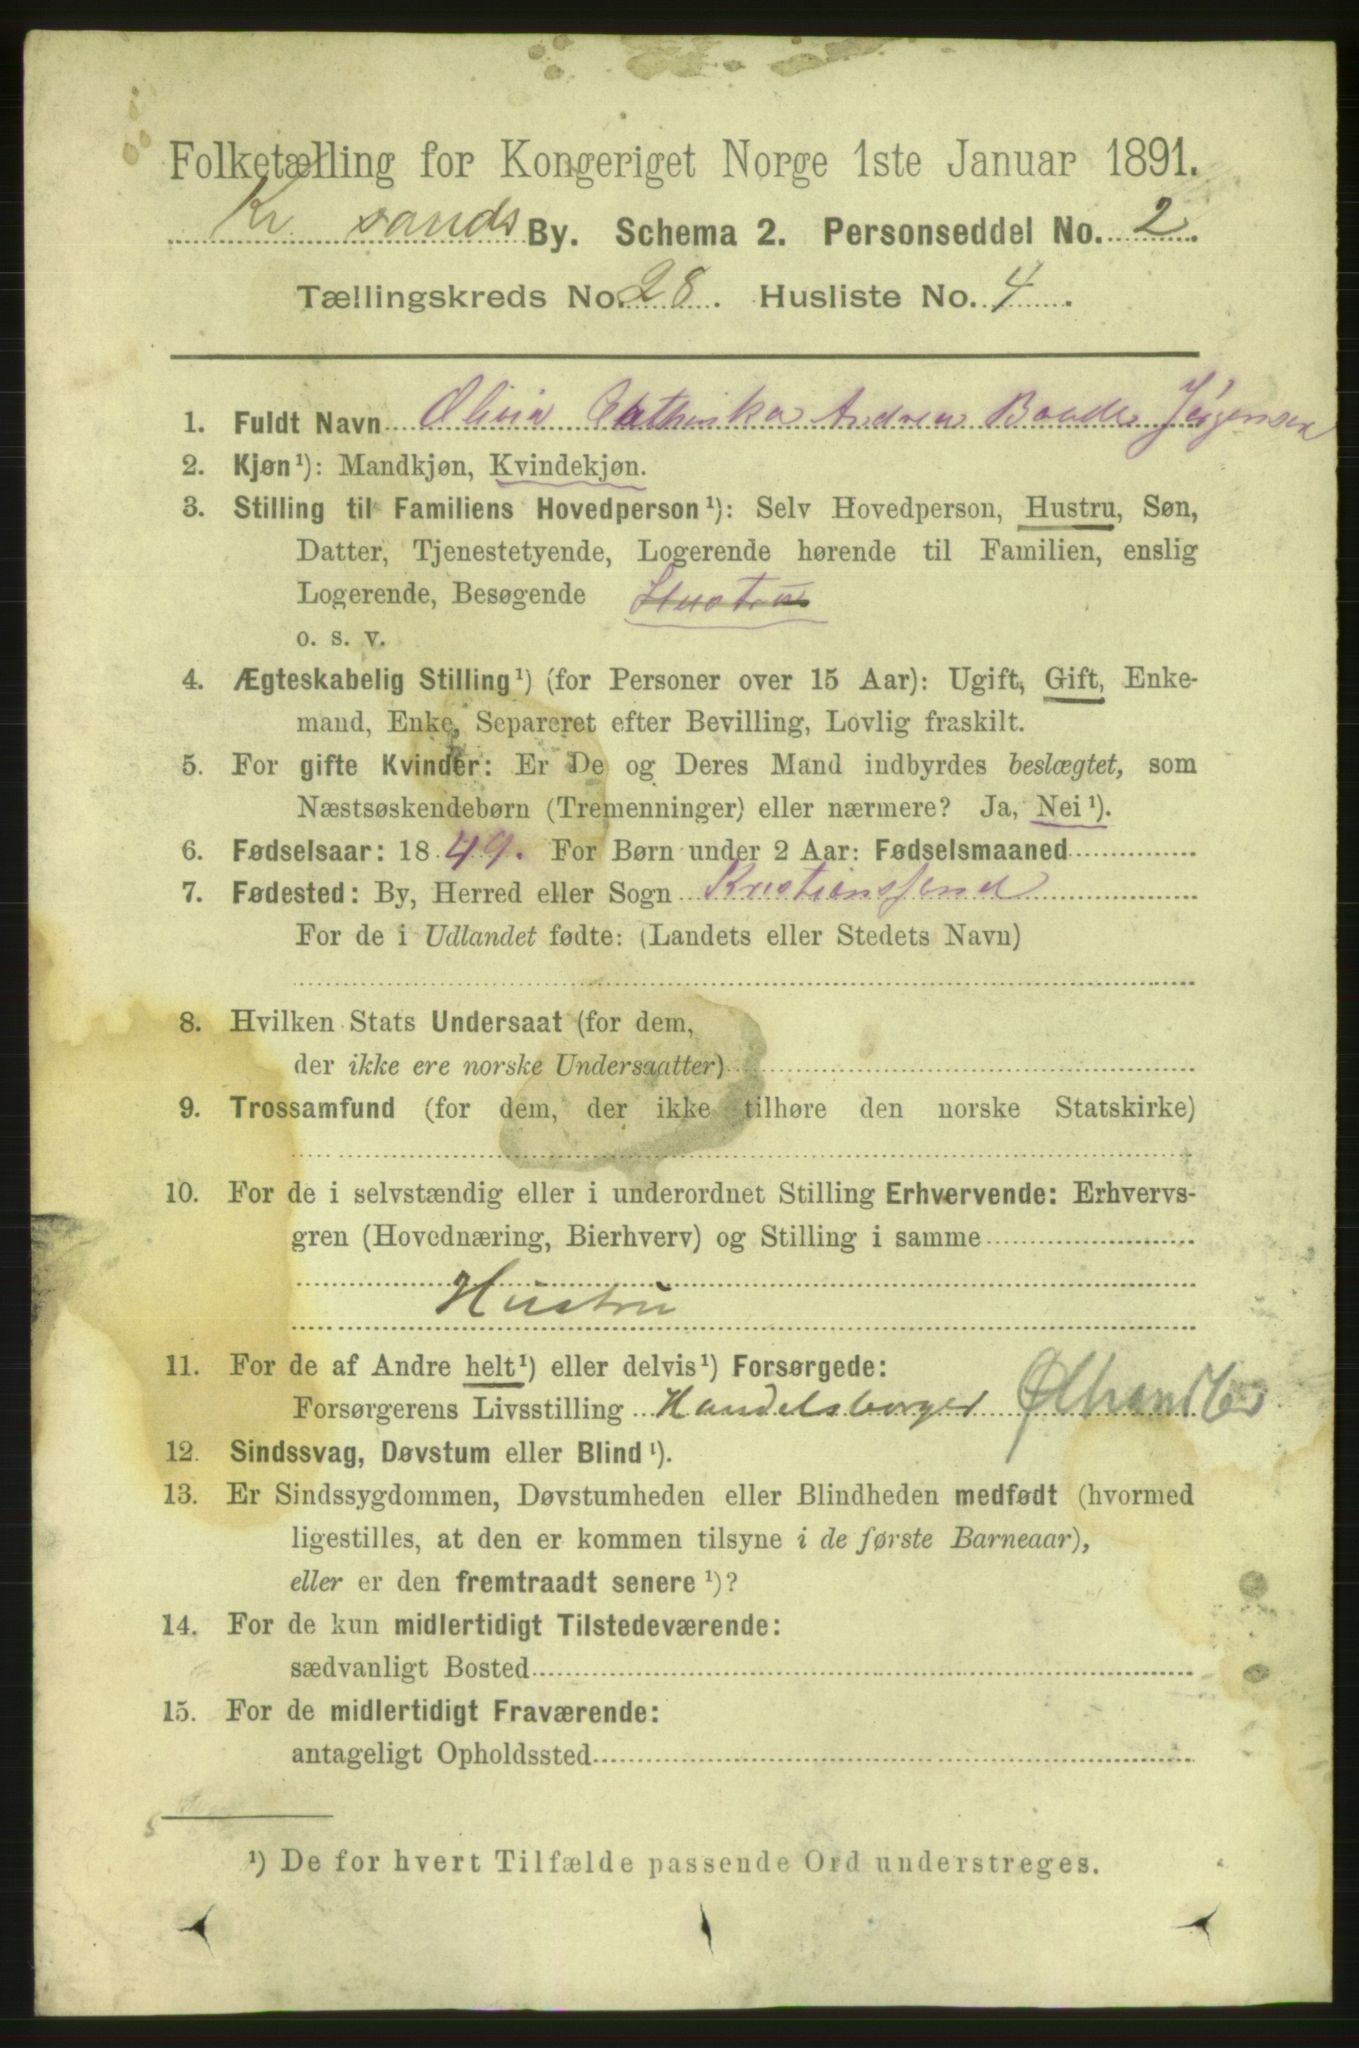 Folketælling for Kongeriget Norge 1ste Januar 1891.
Kr sands By. Schema 2. Personseddel No. 2.
Tællingskreds No. 28. Husliste No. 4.
1. Fuldt Navn Olivia Cathinka Andrea Baade Jørgensen
2. Kjøn¹): Mandkjøn, Kvindekjøn.
3. Stilling til Familiens Hovedperson¹): Selv Hovedperson, Hustru, Søn,
Datter, Tjenestetyende, Logerende hørende til Familien, enslig
Logerende, Besøgende Hustru
o. s. v.
4. Ægteskabelig Stilling¹) (for Personer over 15 Aar): Ugift, Gift, Enke-
mand, Enke, Separeret efter Bevilling, Lovlig fraskilt.
5. For gifte Kvinder: Er De og Deres Mand indbyrdes beslægtet, som
Næstsøskendebørn (Tremenninger) eller nærmere? Ja, Nei¹).
6. Fødselsaar: 1849. For Børn under 2 Aar: Fødselsmaaned
7. Fødested: By, Herred eller Sogn Kristianssand
For de i Udlandet fødte: (Landets eller Stedets Navn)
8. Hvilken Stats Undersaat (for dem,
der ikke ere norske Undersaatter)
9. Trossamfund (for dem, der ikke tilhøre den norske Statskirke)
10. For de i selvstændig eller i underordnet Stilling Erhvervende: Erhvervs-
gren (Hovednæring, Bierhverv) og Stilling i samme
Hustru
11. For de af Andre helt¹) eller delvis¹) Forsørgede:
Forsørgerens Livsstilling Handelsborger
12. Sindssvag, Døvstum eller Blind¹).
13. Er Sindssygdommen, Døvstumheden eller Blindheden medfødt (hvormed
ligestilles, at den er kommen tilsyne i de første Barneaar),
eller er den fremtraadt senere¹)?
14. For de kun midlertidigt Tilstedeværende:
sædvanligt Bosted
15. For de midlertidigt Fraværende:
antageligt Opholdssted
¹) De for hvert Tilfælde passende Ord understreges.